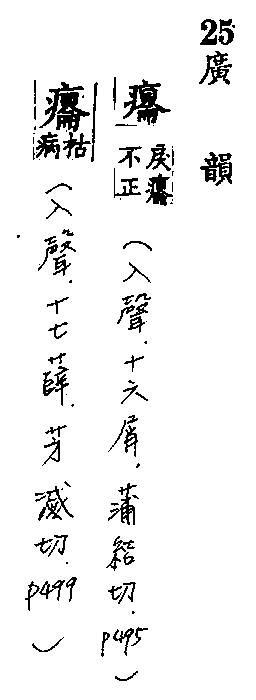 25 廣韻
癟 戾癟不正（入聲.十六屑，蒲結切.p495）
癟 枯病（入聲.十七薛.芳滅切.p499）